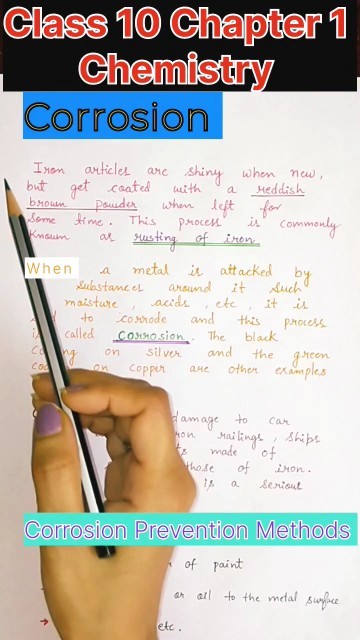 Class 10 Chapter 1
Chemistry
Corrosion
Iron articles are shiny when new,
but get coated with a reddish
brown powder when left for
some time. This process is commonly
known as rusting of iron
When a metal is attacked by
substances around it such
moisture, acids, etc, it is
to corrode and this process
is called corrosion. The black
on silver and the green
on copper are other examples
damage to car
railings, ships
made of
those of iron.
is a serious
Corrosion Prevention Methods
of paint
or oil to the metal surface
etc.